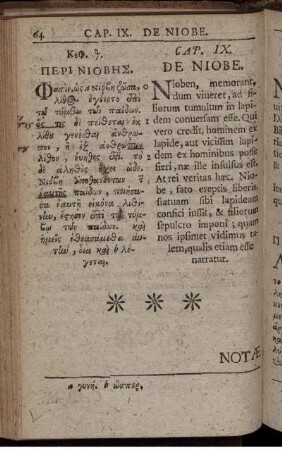 64 CAP. IX. DE NIOBE.
Κεφ. θ.
ΠΕΡΙ ΝΙΟΒΗΣ.
Φασὶν, ὡς Νιόβη ζῶσα,
λίθος ἐγένετο ἐπὶ
τῷ τύμβῳ τῶν παίδων.
ὅστις δὲ πείθεται ἐκ
λίθου γενέσθαι ἄνθρω-
πον, ἢ ἐξ ἀνθρώπου
λίθον, εὐήθης ἐστί. τὸ
δὲ ἀληθὲς ἔχει ὧδε.
Νιόβη ἀποθανόντων τ
ἑαυτῆς παίδων, ποιήσα-
σα ἑαυτῇ εἰκόνα λιθί-
νην, ἔστησεν ἐπὶ τῷ τύμ-
βῳ τῶν παίδων. καὶ
ἡμεῖς ἐθεασάμεθα αὐ-
τὴν, οἵα καὶ b λέ-
γεται.
CAP. IX.
DE NIOBE.
Nioben, memorant,
dum viueret, ad fi-
liorum tumulum in lapi-
dem conuersam esse. Qui
vero credit, hominem ex
lapide, aut vicissim lapi-
dem ex hominibus posse
fieri, næ ille insulsus est.
At rei veritas hæc. Nio-
be, fato ereptis liberis,
statuam sibi lapideam
confici iussit, & filiorum
sepulcro imponi; quam
nos ipsimet vidimus ta-
lem, qualis etiam esse
narratur.
* * *
NOTÆ
a γυνή. b ὥσπερ.